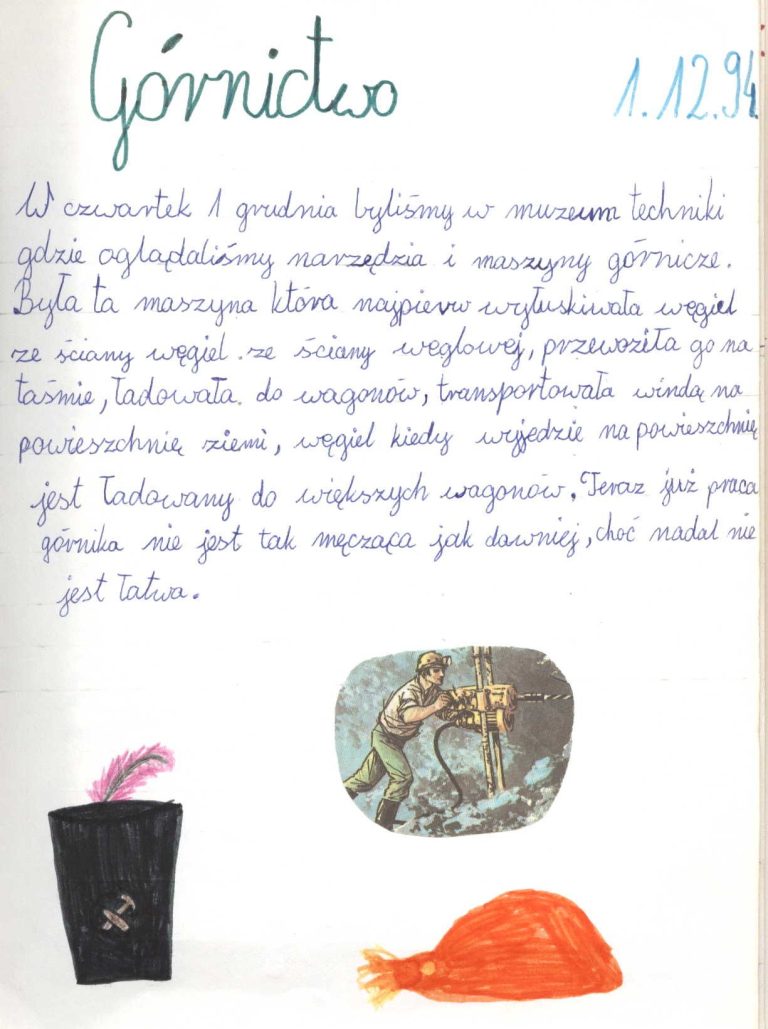 Górnictwo
1.12.94.
W czwartek 1 grudnia byliśmy w muzeum techniki
gdzie oglądaliśmy narzędzia i maszyny górnicze.
Była ta maszyna która najpierw wyłuskiwała węgiel
ze ściany węgiel ze ściany węglowej, przewoziła go na
taśmie, ładowała do wagonów, transportowała windą na
powieszchnię ziemi, węgiel kiedy wyjędzie na powieszchnię
jest ładowany do większych wagonów. Teraz już praca
górnika nie jest tak męcząca jak dawniej, choć nadal nie
jest łatwa.